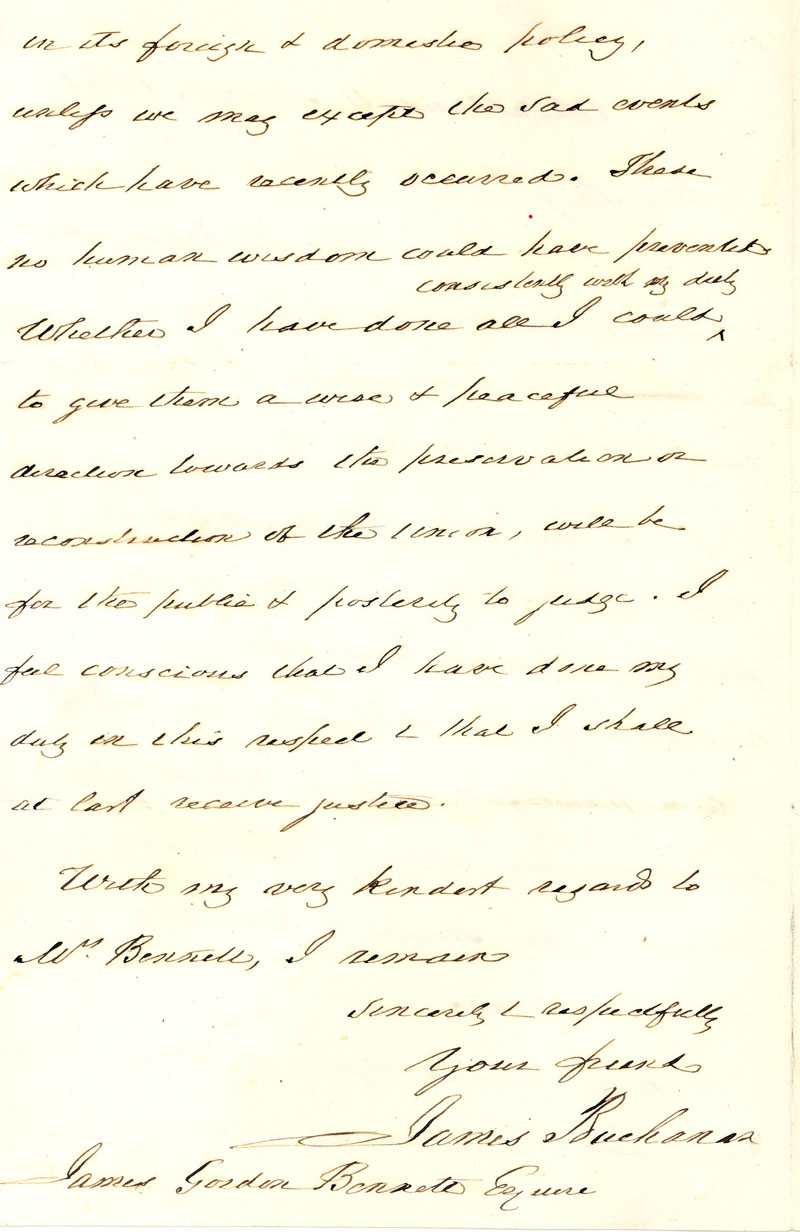 in its foreign & domestic policy,
unless we may except the sad events
which have recently occurred. These
no human wisdom could have prevented.
consistently with my duty
Whether I have done all I could ‸
to give them a wise & peaceful
direction towards the preservation or
reconstruction of the Union, will be
for the public & posterity to judge. I
feel conscious that I have done my
duty in this respect & that I shall
at last receive justice.
With my very kindest regards to
Mrs. Bennett, I remain
Sincerely & respectfully
Your friend
James Buchanan
James Gordon Bennett Esquire